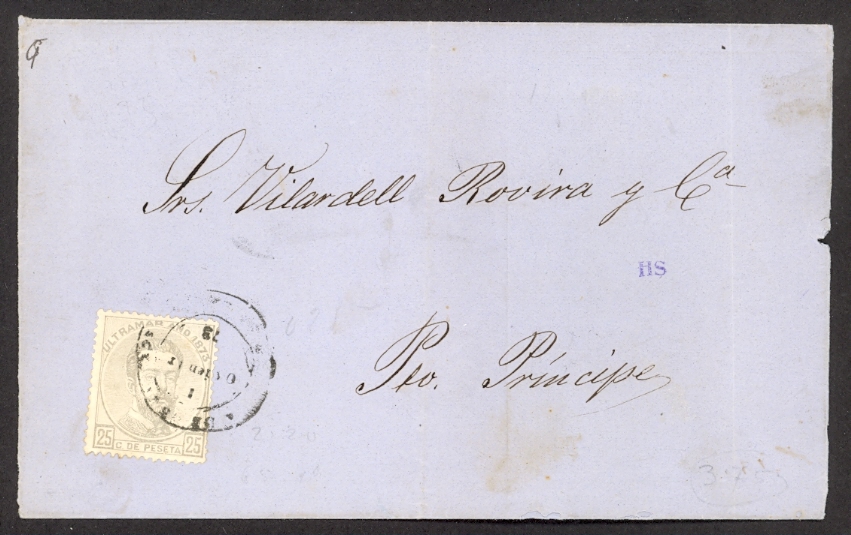 Srs. Vilardell Rovira y Ca
HS
Pto. Príncipe
ULTRAMAR AÑO 1873
73
25 C. DE PESETA 25